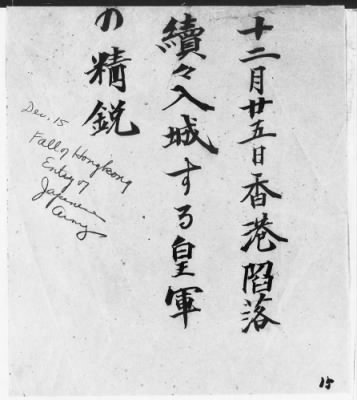 十二月廿五日香港陷落
續々入城する皇軍
の精鋭
Dec. 15
Fall of Hongkong
Entry of
Japanese
Army
15